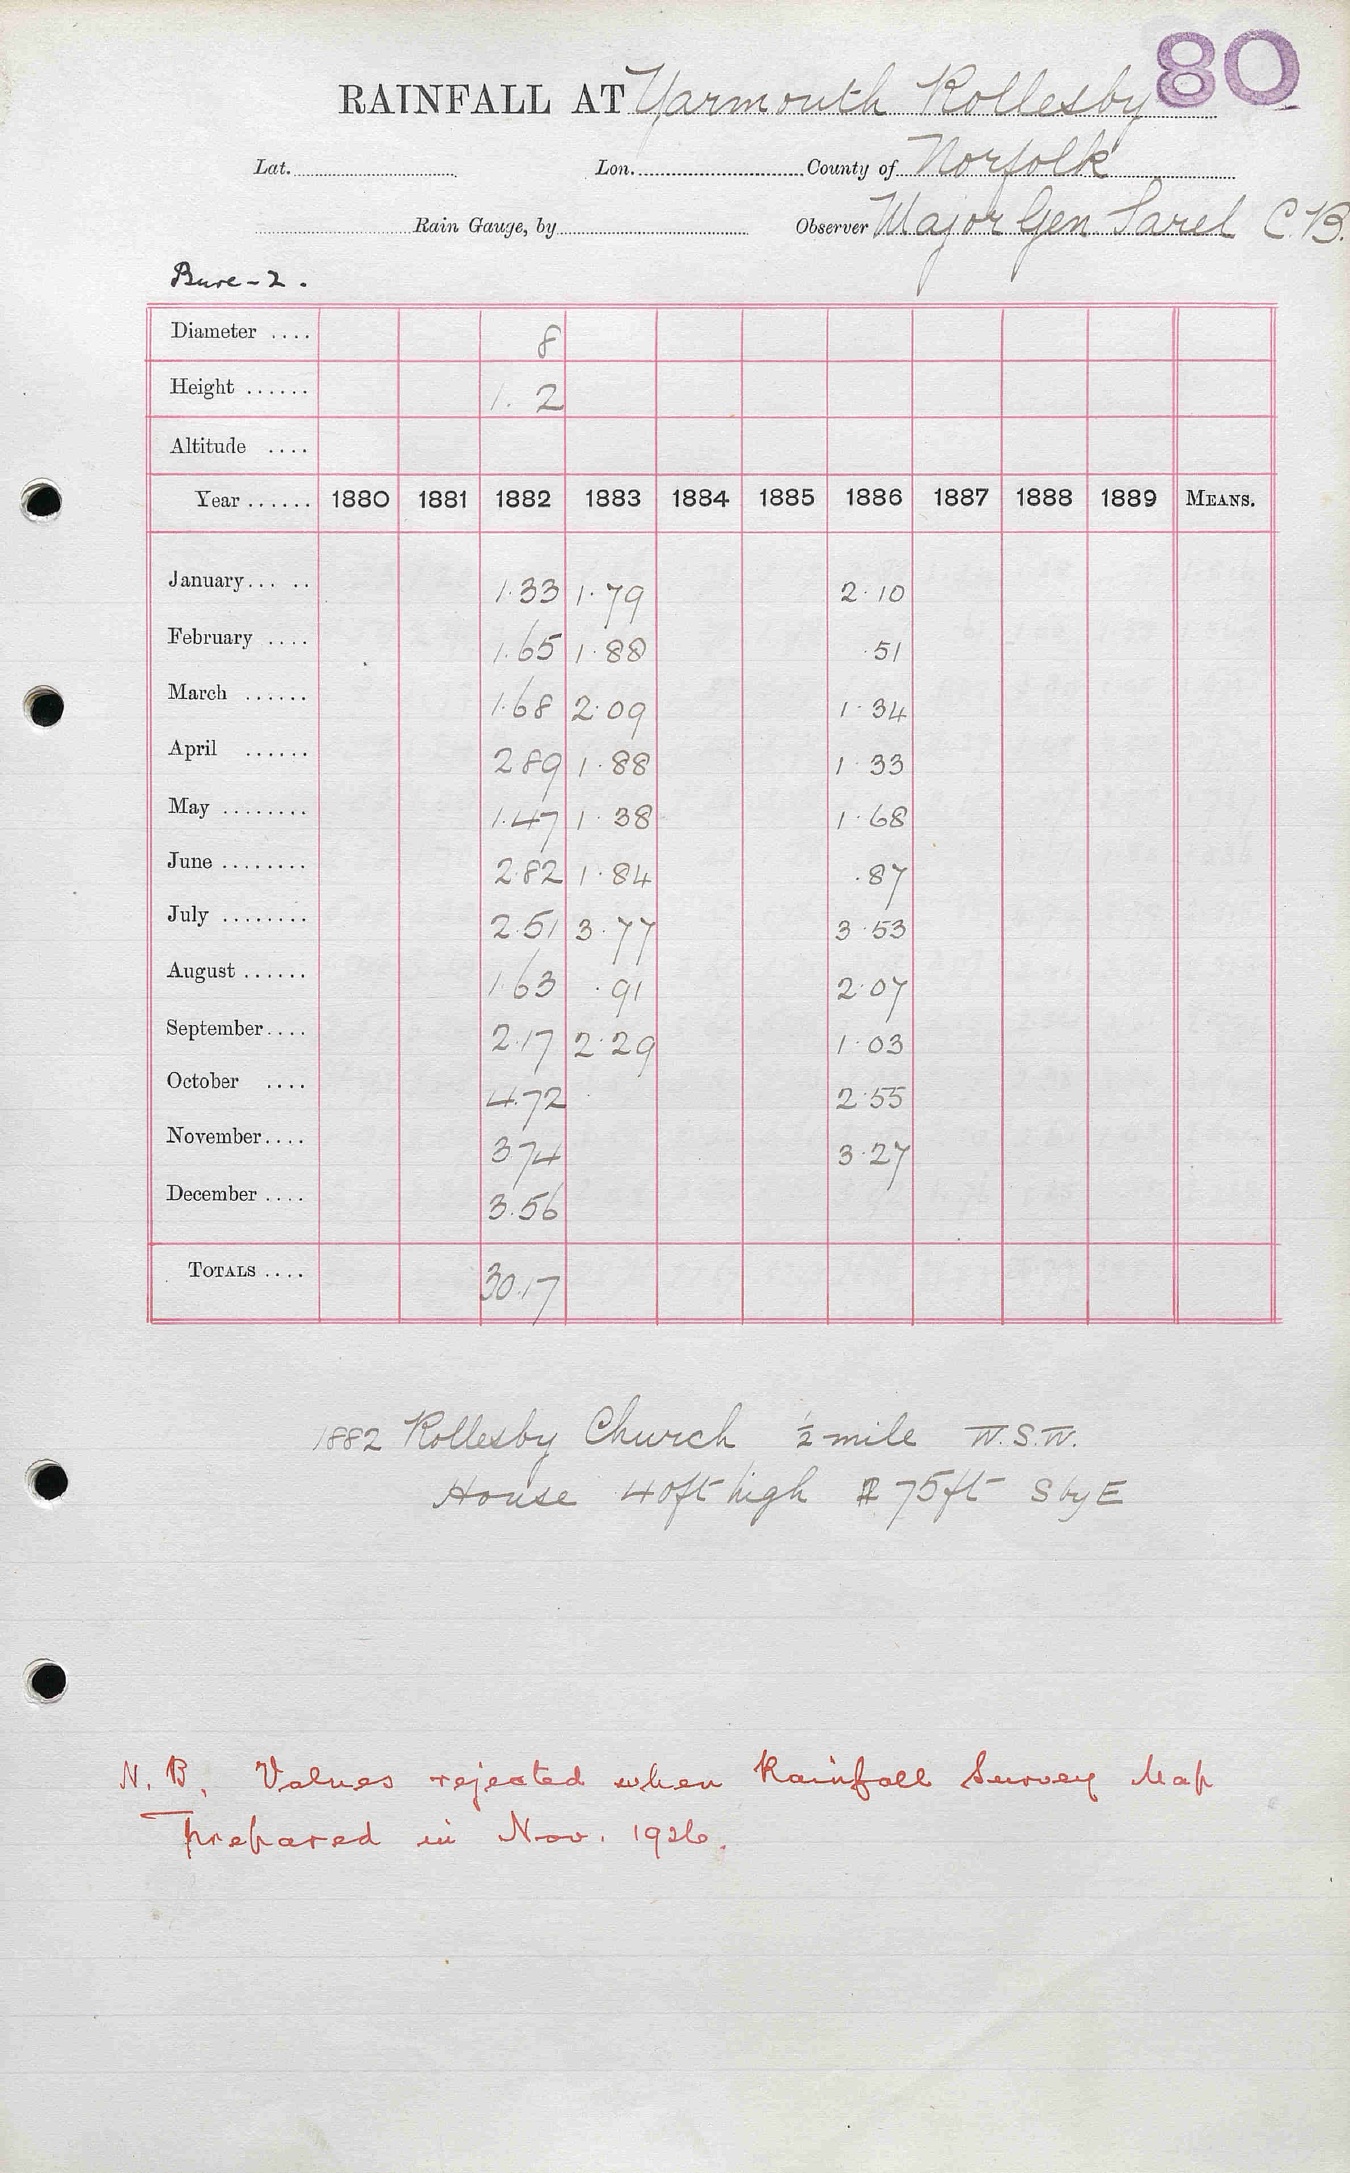 80
RAINFALL AT Yarmouth Rollesby
Lat. Lon. County of Norfolk
Rain Gauge, by Observer Major Gen Sarel C.B.
Bure - 2.
Diameter .... 8
Height ...... 1. 2
Altitude ....
Year ...... 1880 1881 1882 1883 1884 1885 1886 1887 1888 1889 MEANS.
January... .. 1.33 1.79 2.10
February .... 1.65 1.88 .51
March ...... 1.68 2.09 1.34
April ...... 2 89 1.88 1 33
May ........ 1.47 1.38 1.68
June ........ 2.82 1.84 .87
July ........ 2.51 3.77 3.53
August ...... 1.63 .91 2.07
September.... 2.17 2.29 1.03
October .... 4.72 2.55
November.... 3 74 3.27
December .... 3.56
TOTALS .... 30.17
1882 Rollesby Church ½ mile W.S.W.
House 40ft high 75ft S by E
N.B. Values rejected when Rainfall Survey Map
prepared in Nov. 1926.